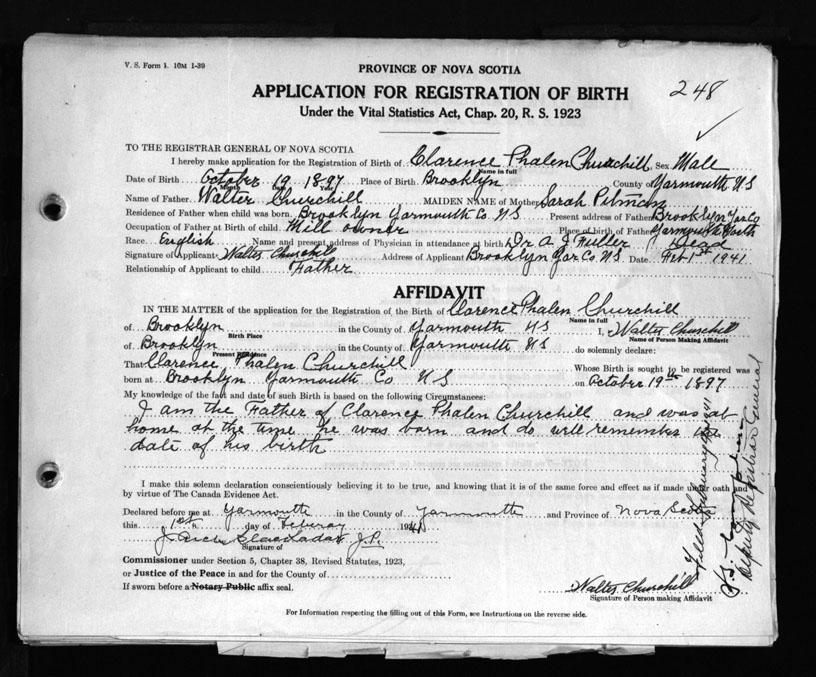 V. S. Form 1. 10M 1-39
PROVINCE OF NOVA SCOTIA
248
APPLICATION FOR REGISTRATION OF BIRTH
Under the Vital Statistics Act, Chap. 20, R. S. 1923
TO THE REGISTRAR GENERAL OF NOVA SCOTIA
I hereby make application for the Registration of Birth of Clarence Phalen Churchill, Sex Male
Name in full
Date of Birth October 19 1897 Place of Birth Brooklyn County of Yarmouth N S
Month Day Year
Name of Father Walter Churchill MAIDEN NAME of Mother Sarah Pitman
Residence of Father when child was born Brooklyn Yarmouth Co N S Present address of Father Brooklyn Yar Co
Occupation of Father at Birth of child Mill owner Place of birth of Father Yarmouth North
Race English Name and present address of Physician in attendance at birth Dr A J Fuller Dead
Signature of Applicant Walter Churchill Address of Applicant Brooklyn Yar Co N.S. Date Feb 1st 1941
Relationship of Applicant to child Father
AFFIDAVIT
IN THE MATTER of the application for the Registration of the Birth of Clarence Phalen Churchill
Name in full
of Brooklyn in the County of Yarmouth NS I, Walter Churchill
Birth Place Name of Person Making Affidavit
of Brooklyn in the County of Yarmouth N S do solemnly declare:
Present Residence
That Clarence Phalen Churchill Whose Birth is sought to be registered was
born at Brooklyn Yarmouth Co N S on October 19th 1897
My knowledge of the fact and date of such Birth is based on the following Circumstances:
I am the Father of Clarence Phalen Churchill and was at
home at the time he was born and do will remember the
date of his birth
I make this solemn declaration conscientiously believing it to be true, and knowing that it is of the same force and effect as if made under oath and
by virtue of The Canada Evidence Act.
Declared before me at Yarmouth in the County of Yarmouth and Province of Nova Scotia
this 1st day of Feburay 1941
J. J.P.
Signature of
Commissioner under Section 5, Chapter 38, Revised Statutes, 1923,
or Justice of the Peace in and for the County of
If sworn before a Notary Public affix seal.
Walter Churchill
Signature of Person making Affidavit
For Information respecting the filling out of this Form, see Instructions on the reverse side.
Filed February 1941
Deputy Registrar General